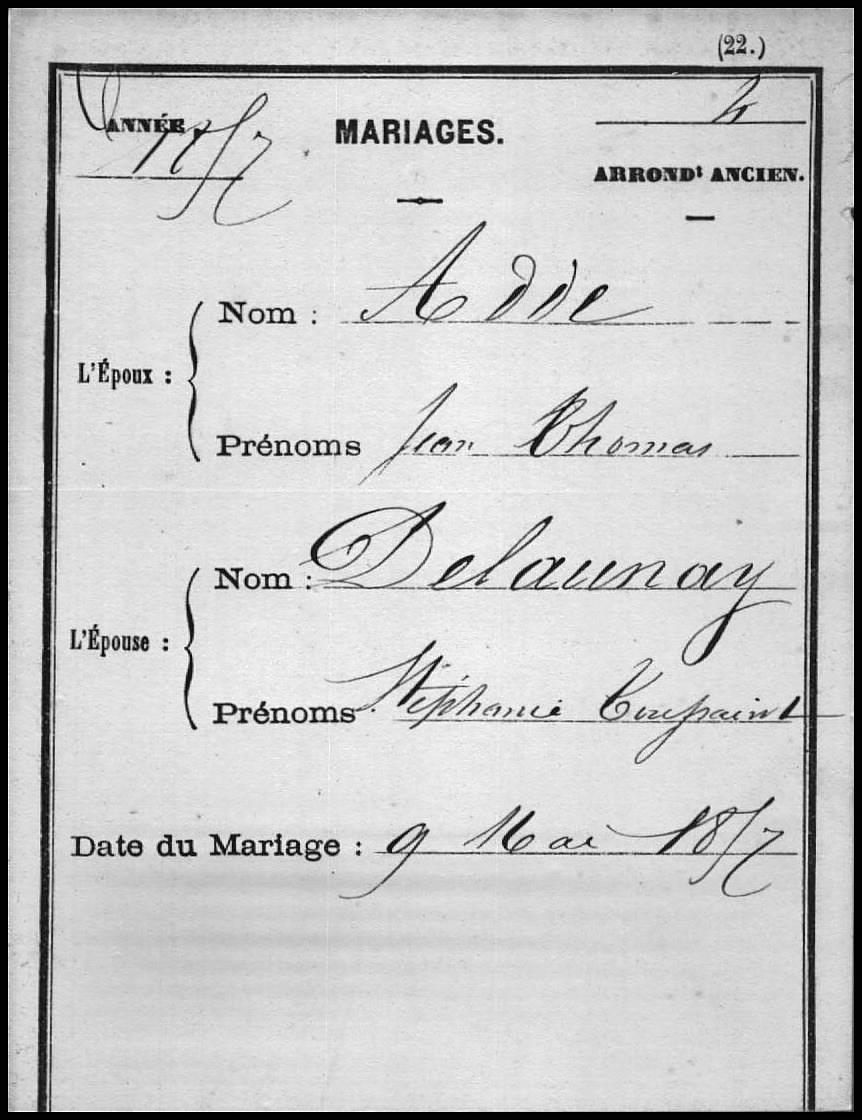 (22.)
ANNÉE 1857
MARIAGES.
ARRONDᵗ ANCIEN.
L'Époux :
Nom : Adde
Prénoms Jean Thomas
L'Épouse :
Nom : Delaunay
Prénoms Stéphanie
Date du Mariage : 9 Mai 1857